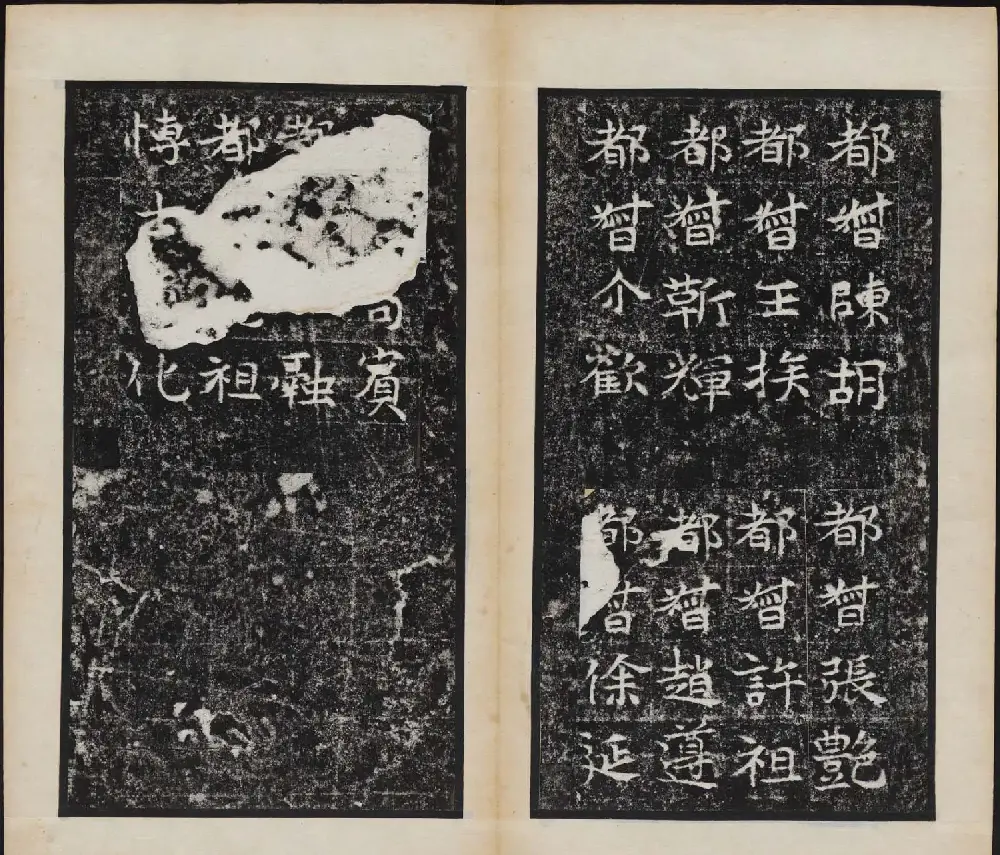 都督陳胡
都督王挨
都督靳輝
都督尒歡
都督張艷
都督許祖
都督趙遵
都督徐延
司賓
融
都祖
博化